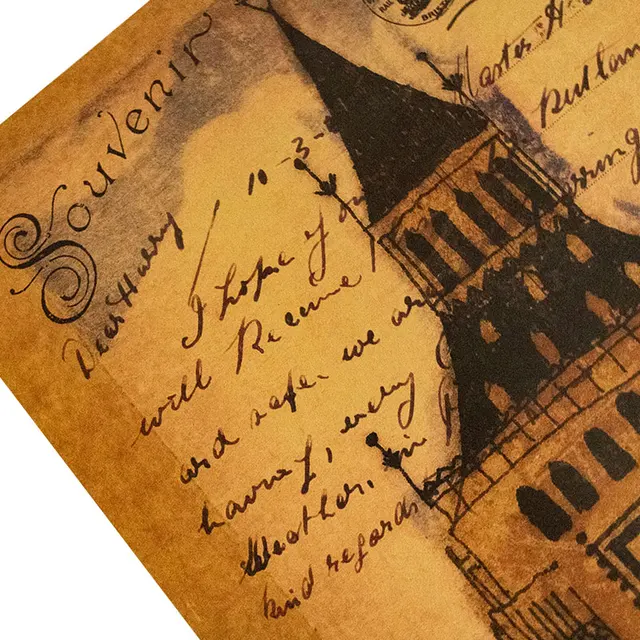 Souvenir
Dear Harry
10-3-
I hope you
will Receive
and safe. we are
having, every
Weather, in
kind regards
Master H.
Rutlan